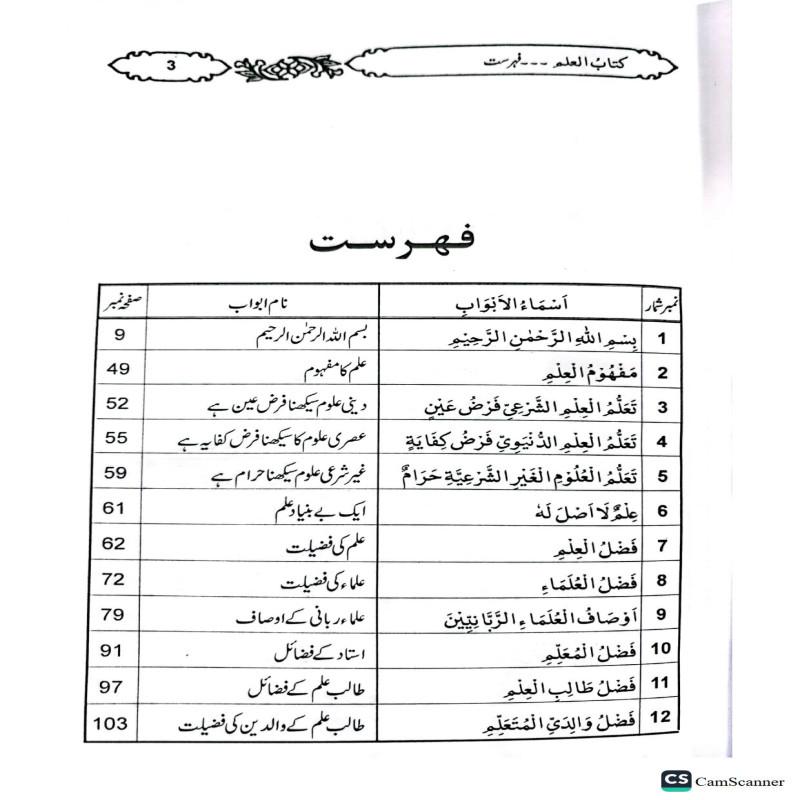 کتابُ العلم ---فہرست 3
فہرست
نمبر شمار اَسْمَاءُ الْاَبْوَابِ نام ابواب صفحہ نمبر
1 بِسْمِ اللّٰهِ الرَّحْمٰنِ الرَّحِیْمِ بسم اللہ الرحمٰن الرحیم 9
2 مَفْهُوْمُ الْعِلْمِ علم کا مفہوم 49
3 تَعَلُّمُ الْعِلْمِ الشَّرْعِيِّ فَرْضُ عَيْنٍ دینی علوم سیکھنا فرض عین ہے 52
4 تَعَلُّمُ الْعِلْمِ الدُّنْيَوِيِّ فَرْضُ كِفَايَةٍ عصری علوم کا سیکھنا فرض کفایہ ہے 55
5 تَعَلُّمُ الْعُلُوْمِ الْغَيْرِ الشَّرْعِيَّةِ حَرَامٌ غیر شرعی علوم سیکھنا حرام ہے 59
6 عِلْمٌ لَا اَصْلَ لَهُ ایک بے بنیاد علم 61
7 فَضْلُ الْعِلْمِ علم کی فضیلت 62
8 فَضْلُ الْعُلَمَاءِ علماء کی فضیلت 72
9 اَوْصَافُ الْعُلَمَاءِ الرَّبَّانِيِّيْنَ علماء ربانی کے اوصاف 79
10 فَضْلُ الْمُعَلِّمِ استاد کے فضائل 91
11 فَضْلُ طَالِبِ الْعِلْمِ طالب علم کے فضائل 97
12 فَضْلُ وَالِدَيِ الْمُتَعَلِّمِ طالب علم کے والدین کی فضیلت 103
CS CamScanner